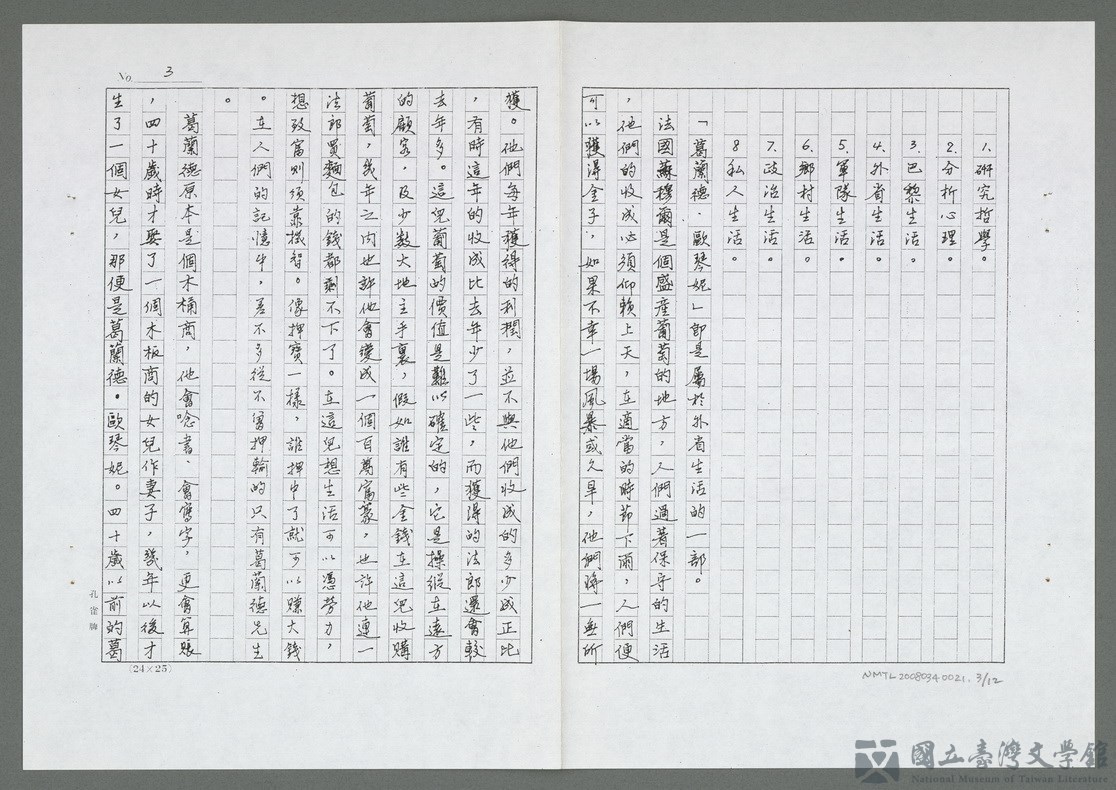 1. 研究哲學。
2. 分析心理。
3. 巴黎生活。
4. 外省生活。
5. 軍隊生活。
6. 鄉村生活。
7. 政治生活。
8 私人生活。
「葛蘭德．歐琴妮」即是屬於外省生活的一部。
法國蘇穆爾是個盛產葡萄的地方，人們過著保守的生活
，他們的收成必須仰賴上天，在適當的時節下雨，人們便
可以獲得金子，如果不幸一場風暴或久旱，他們將一無所
獲。他們每年獲得的利潤，並不與他們收成的多少成正比
，有時這年的收成比去年少了一些，而獲得的法郎還會較
去年多。這兒葡萄的價值是難以確定的，它是操縱在遠方
的顧客，及少數大地主手裏，假如誰有些金錢在這兒收購
葡萄，幾年之內也許他會變成一個百萬富豪，也許他連一
法郎買麵包的錢都剩不下了。在這兒想生活可以憑勞力，
想致富則須靠機智。像押寶一樣，誰押中了就可以賺大錢
。在人們的記憶中，差不多從不曾押輸的只有葛蘭德先生
。
葛蘭德原本是個木桶商，他會唸書、會寫字，更會算賬
，四十歲時才娶了一個木板商的女兒作妻子，幾年以後才
生了一個女兒，那便是葛蘭德．歐琴妮。四十歲以前的葛
No. 3
孔雀牌
(24×25)
NMTL20080340021. 3/12
國立臺灣文學館
National Museum of Taiwan Literature